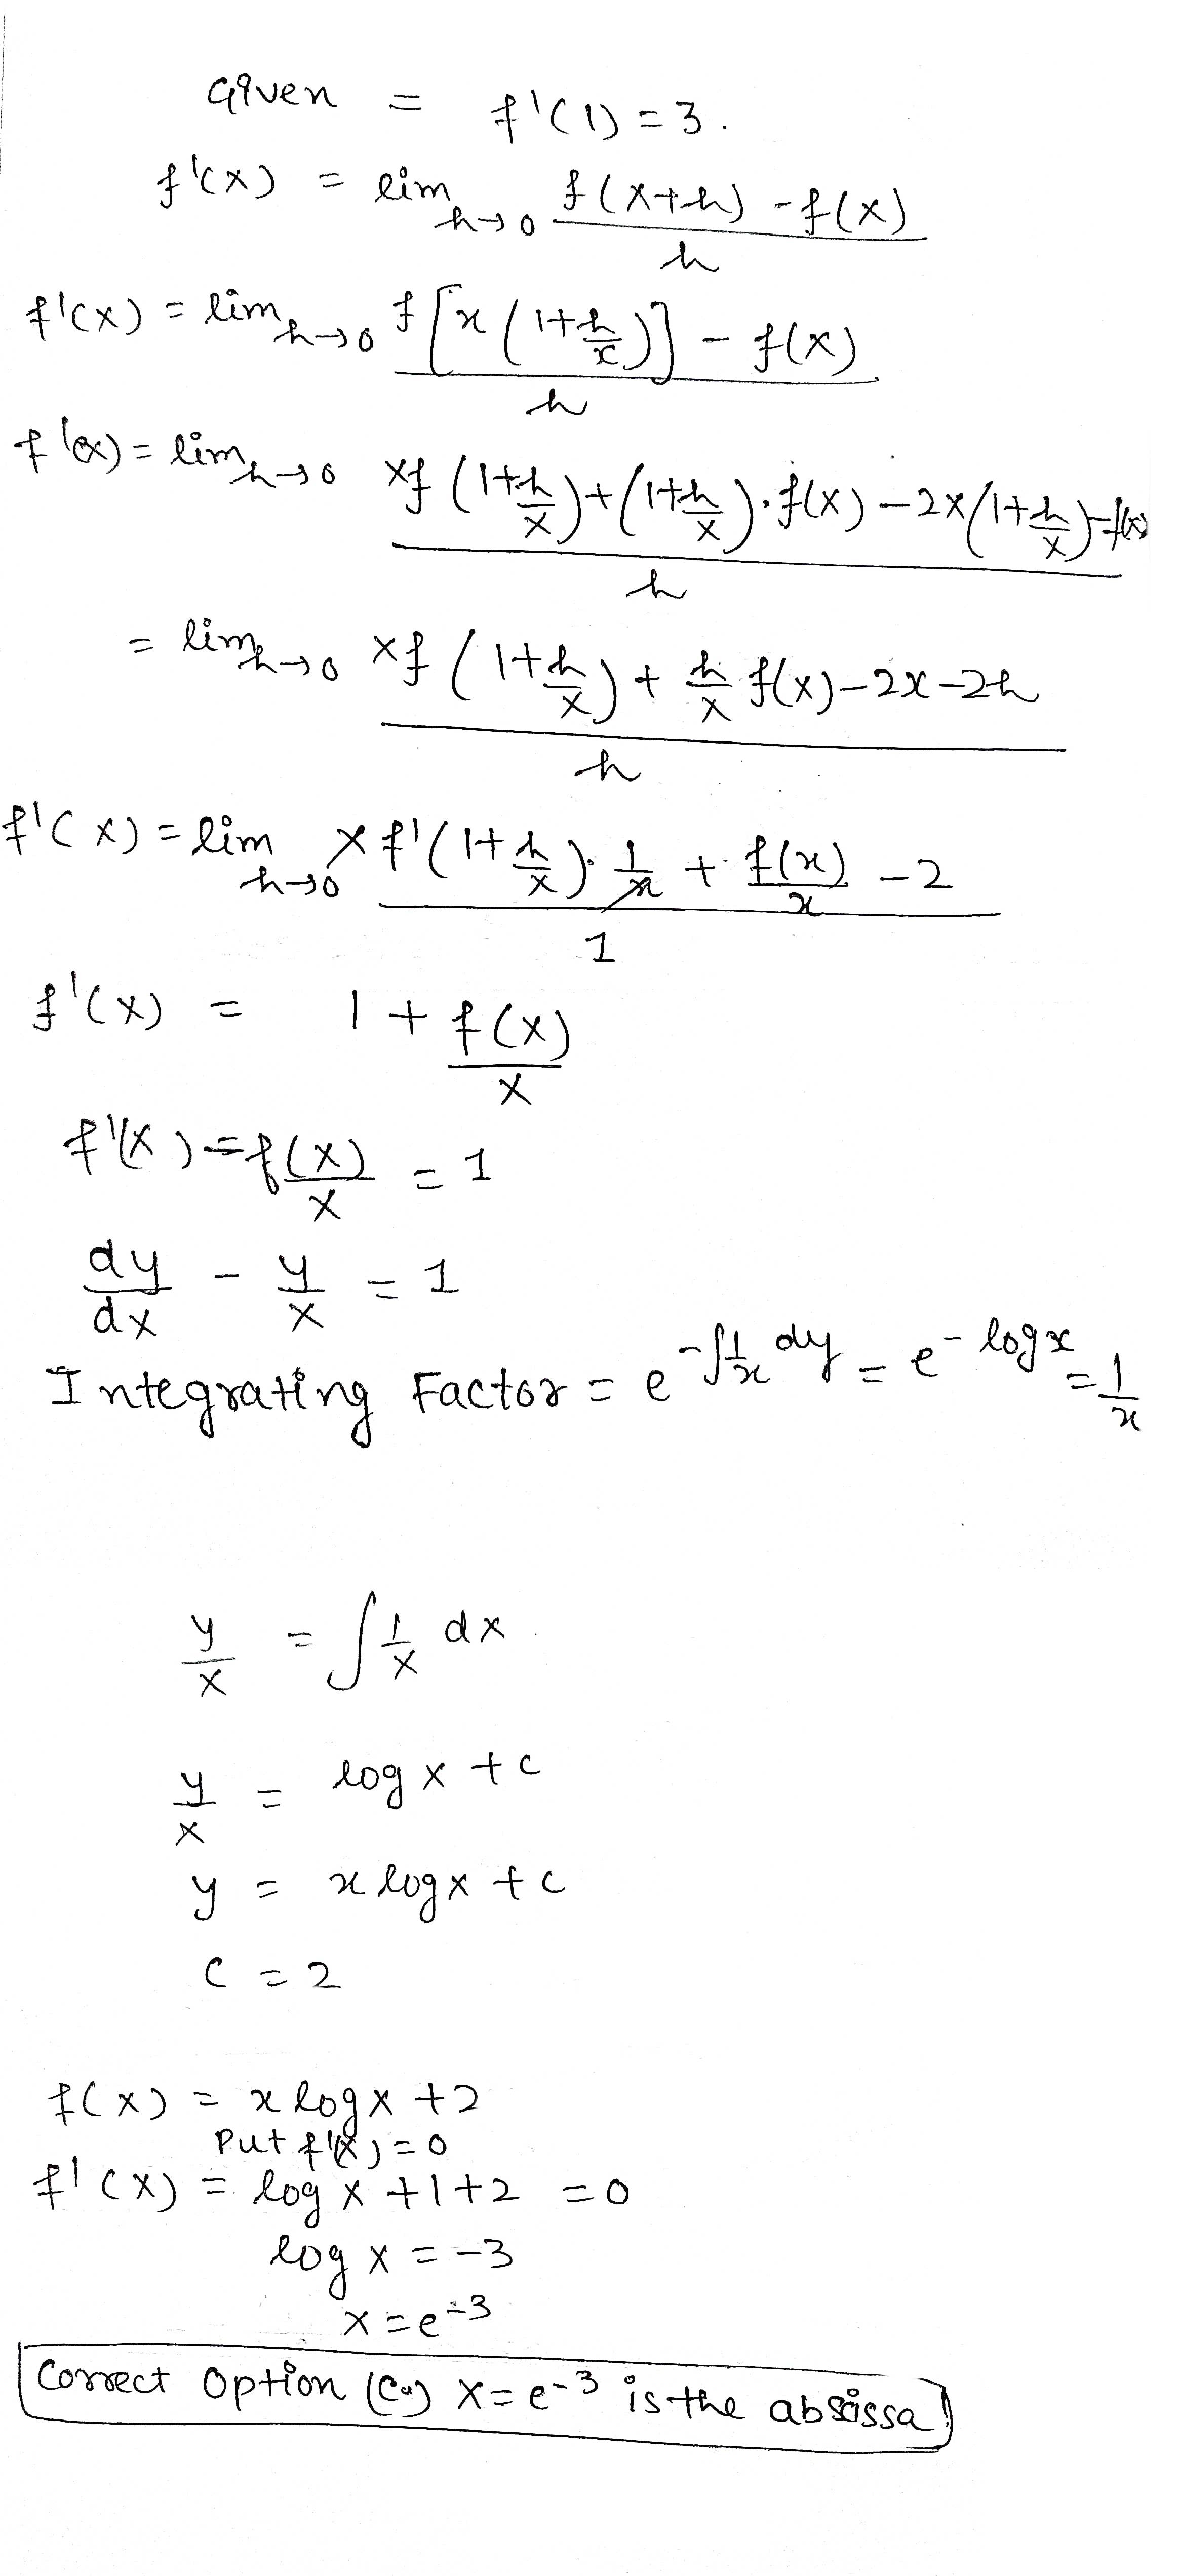 Given = f'(1) = 3.
f'(x) = lim h→0 f(x+h) - f(x) / h
f'(x) = lim h→0 f[x(1+h/x)] - f(x) / h
f'(x) = lim h→0 xf(1+h/x)+(1+h/x).f(x)-2x(1+h/x)-f(x) / h
= lim h→0 xf(1+h/x) + h/x f(x)-2x-2h / h
f'(x) = lim h→0 x f'(1+h/x).1/x + f(x)/x - 2 / 1
f'(x) = 1 + f(x)/x
f'(x) - f(x)/x = 1
dy/dx - y/x = 1
Integrating Factor = e^-∫1/x dy = e^-log x = 1/x
y/x = ∫1/x dx
y/x = log x + c
y = x log x + c
c = 2
f(x) = x log x + 2
Put f'(x) = 0
f'(x) = log x + 1 + 2 = 0
log x = -3
x = e^-3
Correct Option (C.) x = e^-3 is the abscissa